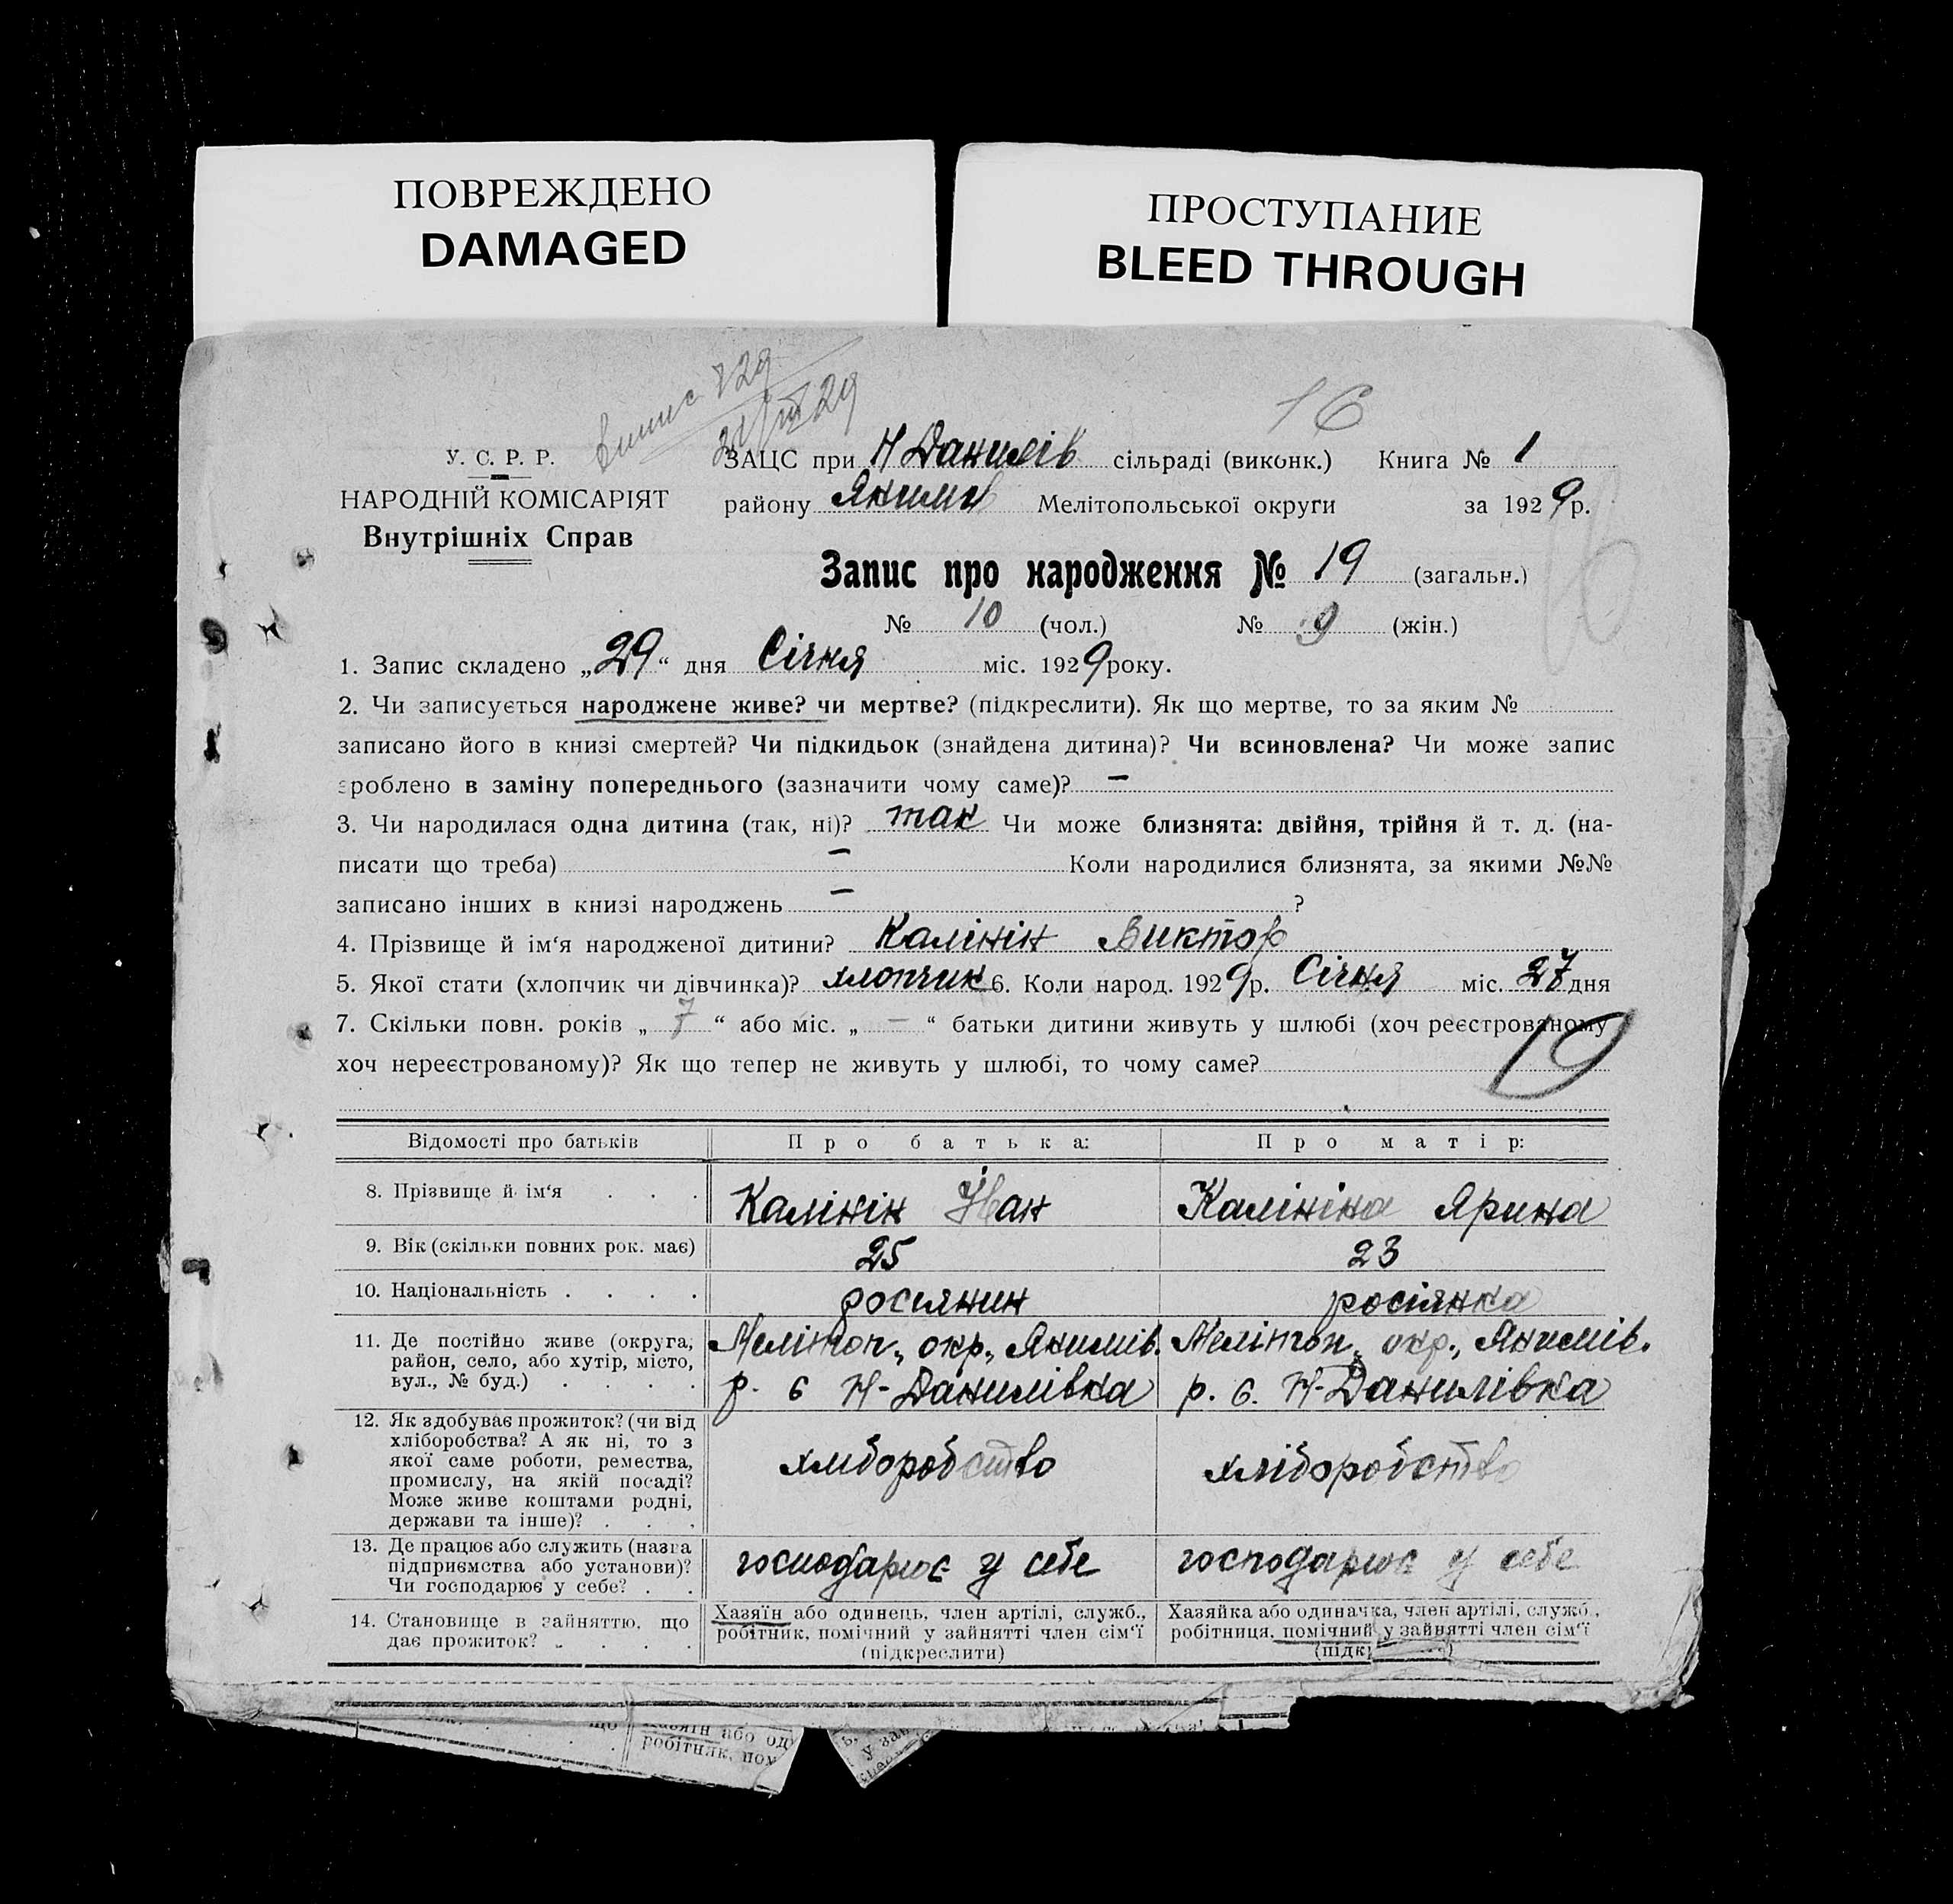 ПОВРЕЖДЕНО
DAMAGED
ПРОСТУПАНИЕ
BLEED THROUGH
16
У. С. Р. Р.
НАРОДНІЙ КОМІСАРІЯТ
Внутрішніх Справ
ЗАЦС при Н Данилів сільраді (виконк.) Книга № 1
району Якимів Мелітопольської округи за 1929 р.
Запис про народження № 19 (загальн.)
№ 10 (чол.) № 9 (жін.)
1. Запис складено „29“ дня Січня міс. 1929 року.
2. Чи записується народжене живе? чи мертве? (підкреслити). Як що мертве, то за яким №
записано його в книзі смертей? Чи підкидьок (знайдена дитина)? Чи всиновлена? Чи може запис
зроблено в заміну попереднього (зазначити чому саме)? —
3. Чи народилася одна дитина (так, ні)? так Чи може близнята: двійня, трійня й т. д. (на-
писати що треба) — Коли народилися близнята, за якими №№
записано інших в книзі народжень — ?
4. Прізвище й ім‘я народженої дитини? Калінін Виктор
5. Якої стати (хлопчик чи дівчинка)? хлопчик 6. Коли народ. 1929 р. Січня міс. 27 дня
7. Скільки повн. років „ 7 “ або міс. „ — “ батьки дитини живуть у шлюбі (хоч реєстрованому
хоч нереєстрованому)? Як що тепер не живуть у шлюбі, то чому саме?
19
Відомості про батьків Про батька: Про матір:
8. Прізвище й ім‘я . . . Калінін Іван Калініна Ярина
9. Вік (скільки повних рок. має) 25 23
10. Національність . . . . росіянин росіянка
11. Де постійно живе (округа, район, село, або хутір, місто, вул., № буд.) . . . .
Мелітоп., окр., Якимів. Мелітоп., окр., Якимів.
р. с Н-Данилівка р. с. Н-Данилівка
12. Як здобуває прожиток? (чи від
хліборобства? А як ні, то з
якої саме роботи, ремества,
промислу, на якій посаді?
Може живе коштами родні,
держави та інше)? . . .
хліборобство хліборобство
13. Де працює або служить (назва
підприємства або установи)?
Чи господарює у себе? . .
господарює у себе господарює у себе
14. Становище в зайняттю, що
дає прожиток? . . . .
Хазяїн або одинець, член артілі, служб.,
робітник, помічний у зайнятті член сім‘ї
(підкреслити)
Хазяйка або одиначка, член артілі, служб.,
робітниця, помічний у зайнятті член сім‘ї
(підк
що
Хазяїн або од
робітник, пом
у зай